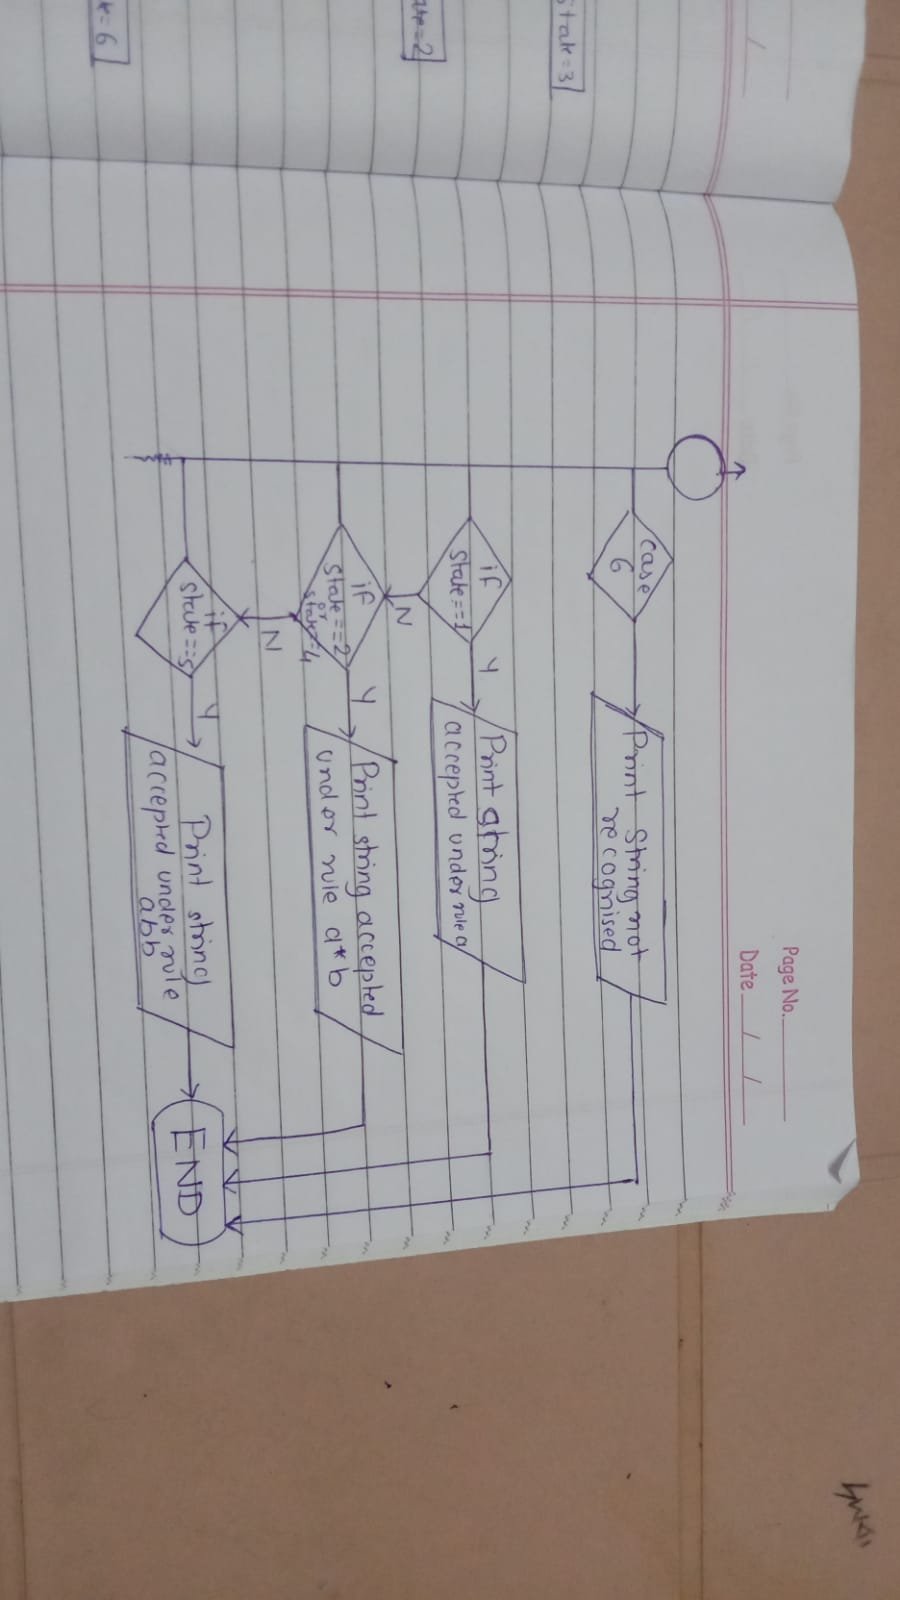 Page No.
Date / /
case
6
Print String not
recognised
if
State==1
Y
N
Print string
accepted under rule a
if
State==2
or
state=4
Y
N
Print string accepted
under rule a*b
if
State==5
Y
Print string
accepted under rule
abb
END
State=3
=2
=6